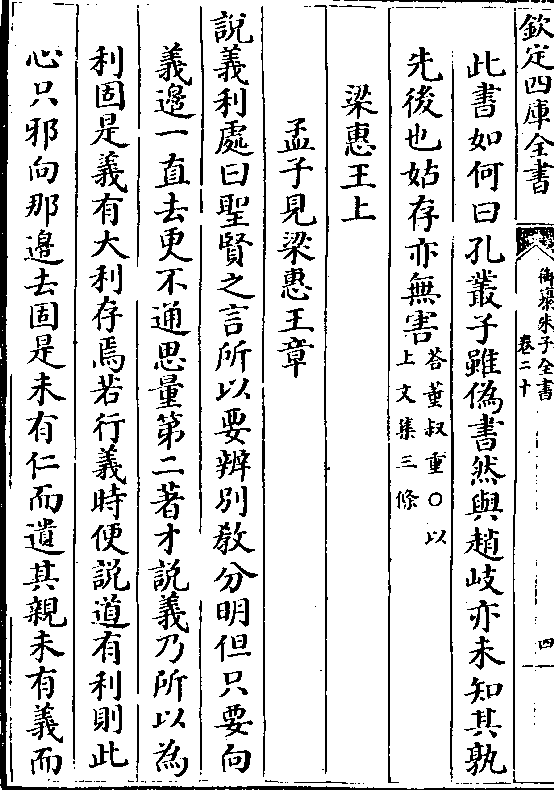 欽定四庫全書
御纂朱子全書
卷二十
四
此書如何曰孔叢子雖偽書然與趙岐亦未知其孰
先後也姑存亦無害
答董叔重○以
上文集三條
梁惠王上
孟子見梁惠王章
說義利處曰聖賢之言所以要辨别教分明但只要向
義邊一直去更不通思量第二著才說義乃所以為
利固是義有大利存焉若行義時便說道有利則此
心只邪向那邊去固是未有仁而遺其親未有義而